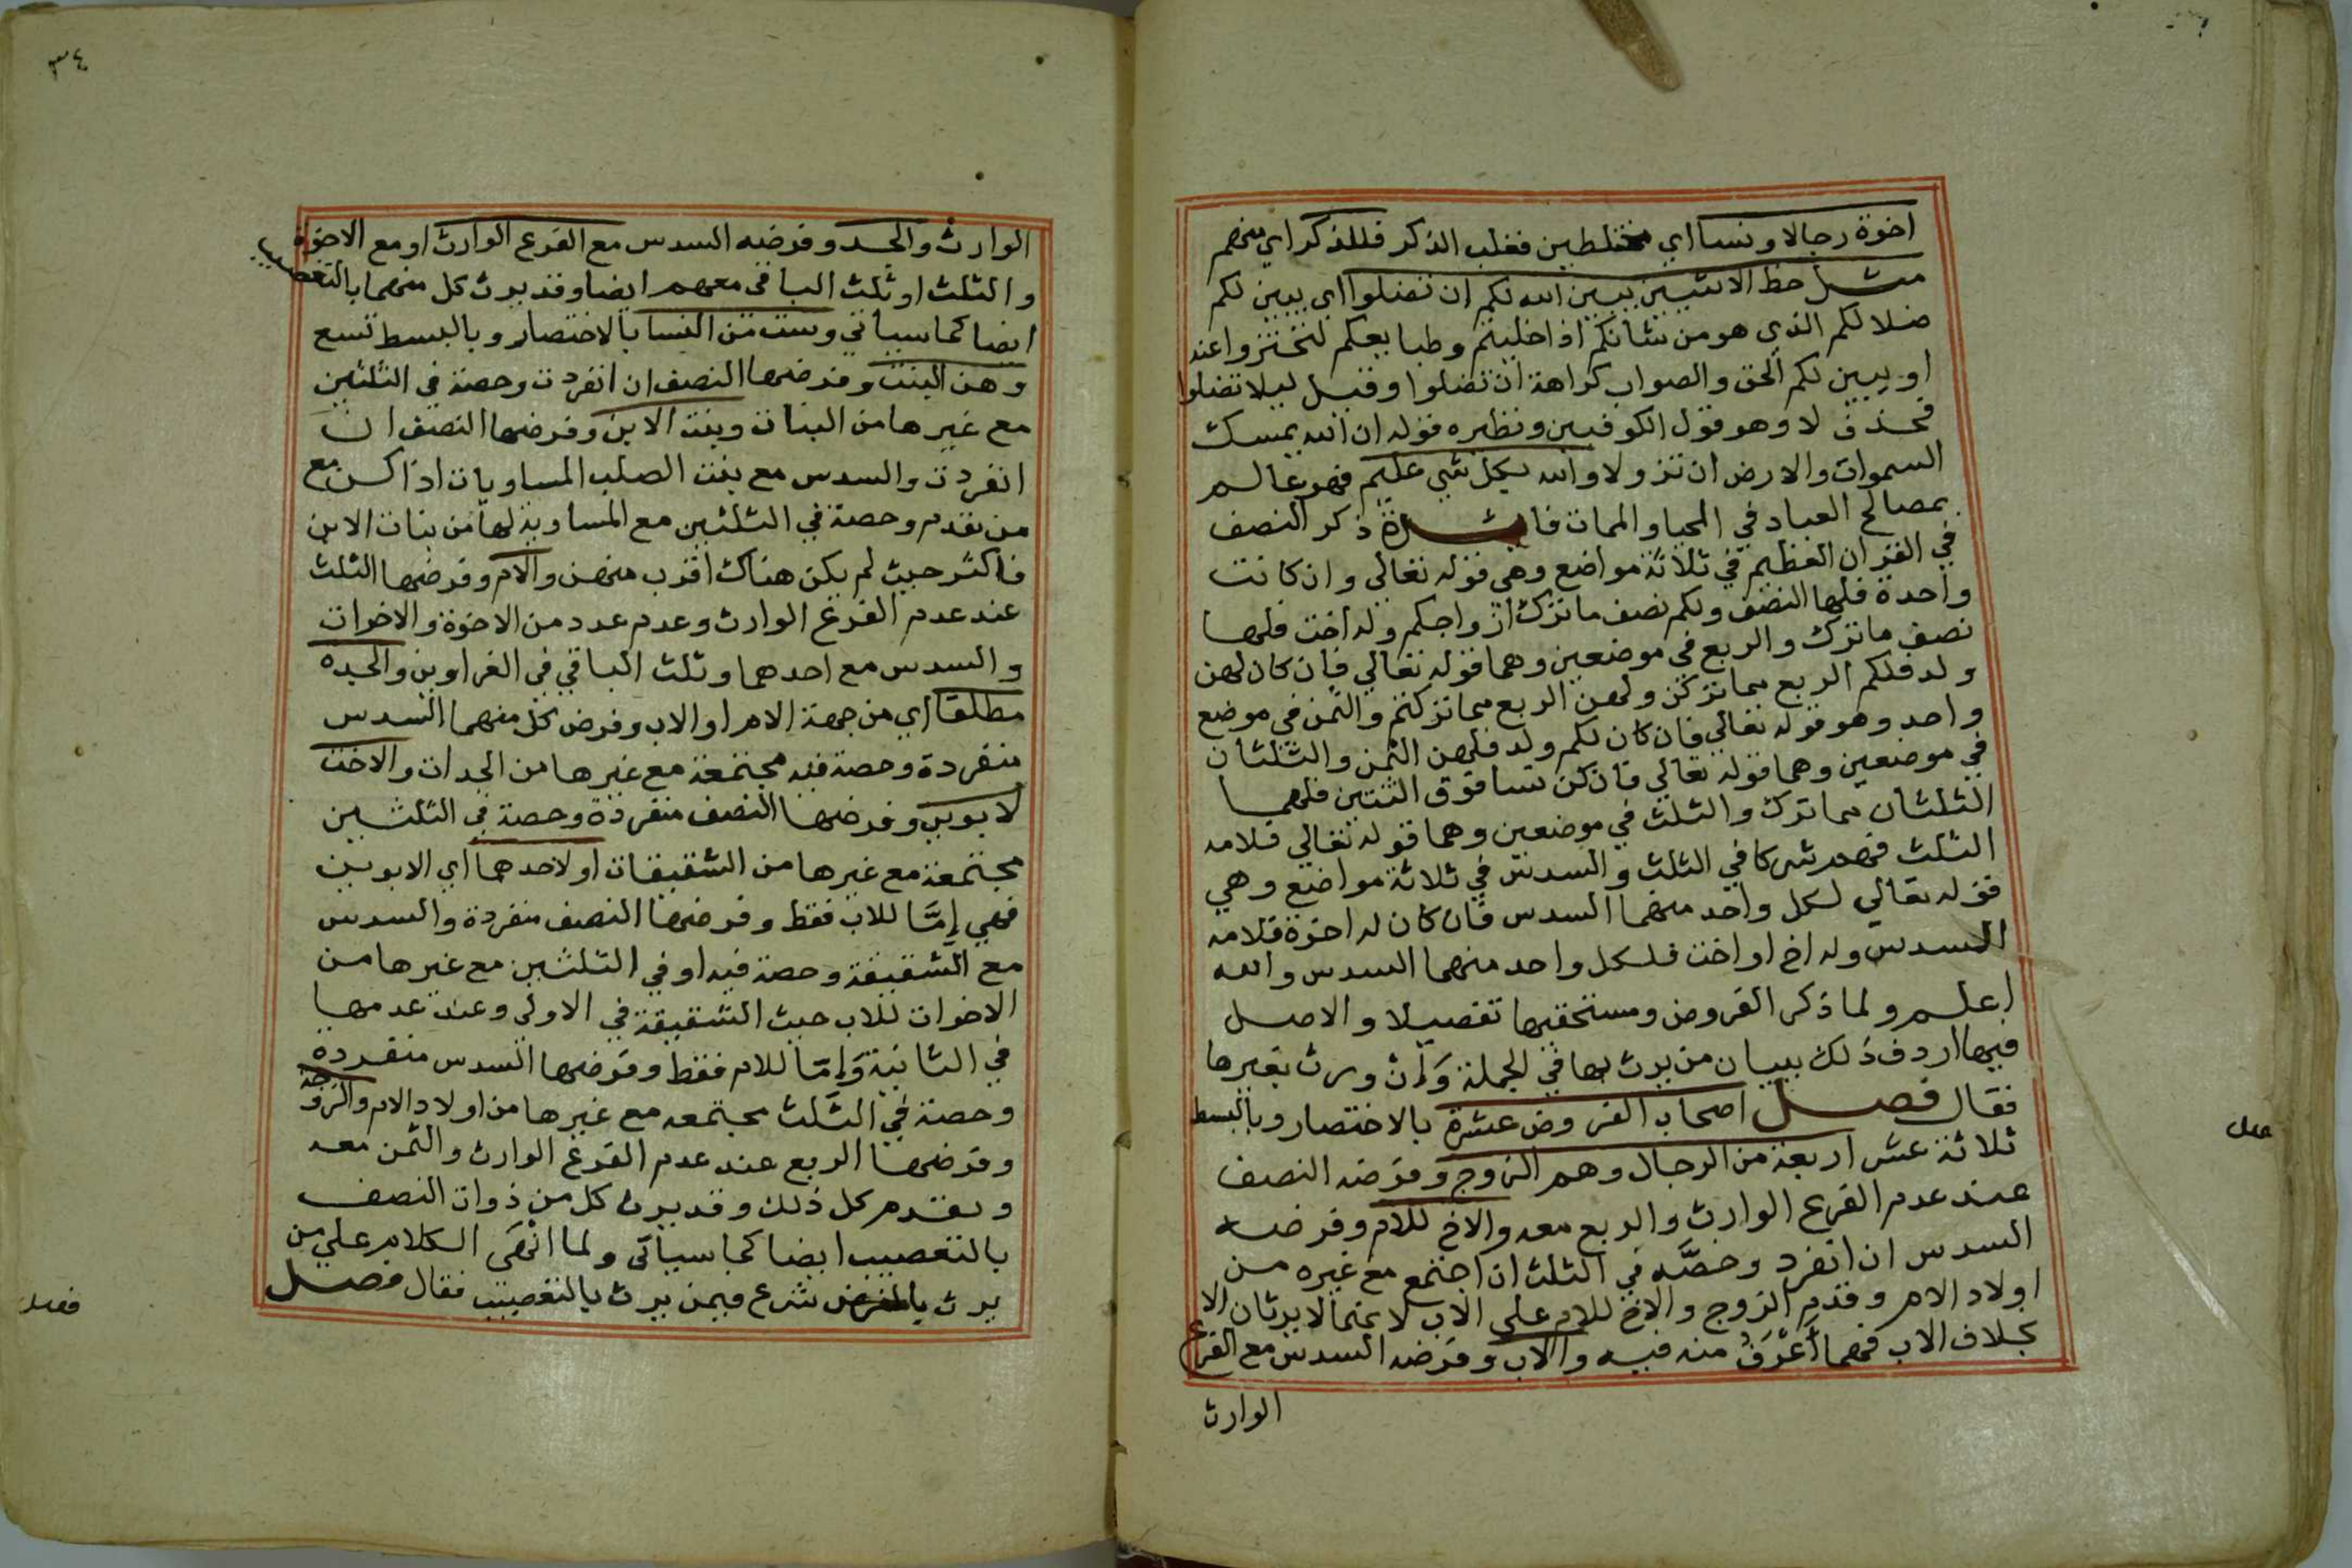 اخوة رجالا ونسا اي مختلطين فغلب الذكر فللذكر اي منهم
مثل حظ الانثيين يبين الله لكم ان تضلوا اي يبين لكم
ضلالكم الذي هو من شانكم اذا خليتم وطبايعكم لتحترزوا عنه
او يبين لكم الحق والصواب كراهة ان تضلوا وقيل ليلا تضلوا
فحذف لا وهو قول الكوفيين ونظيره قوله ان الله يمسك
السموات والارض ان تزولا والله بكل شي عليم فهو عالم
بمصالح العباد في المحيا والممات فايدة ذكر النصف
في القران العظيم في ثلاثة مواضع وهي قوله تعالي وان كانت
واحدة فلها النصف ولكم نصف ما ترك ازواجكم وله اخت فلها
نصف ما ترك والربع في موضعين وهما قوله تعالي فان كان لهن
ولد فلكم الربع مما تركن ولهن الربع مما تركتم والثمن في موضع
واحد وهو قوله تعالي فان كان لكم ولد فلهن الثمن والثلثان
في موضعين وهما قوله تعالي فان كن نسا فوق اثنتين فلهما
الثلثان مما ترك والثلث في موضعين وهما قوله تعالي فلامه
الثلث فهم شركا في الثلث والسدس في ثلاثة مواضع وهي
قوله تعالي لكل واحد منهما السدس فان كان له اخوة فلامه
السدس وله اخ او اخت فلكل واحد منهما السدس والله
اعلم ولما ذكر الفروض ومستحقيها تفصيلا والاصل
فيها اردف ذلك ببيان من يرث بها في الجملة وان ورث بغيرها
فقال فصل اصحاب الفروض عشرة بالاختصار وبالبسط
ثلاثة عشر اربعة من الرجال وهم الزوج وفرضه النصف
عند عدم الفرع الوارث والربع معه والاخ للام وفرضه
السدس ان انفرد وحصته في الثلث ان اجتمع مع غيره من
اولاد الام وقدم الزوج والاخ للام علي الاب لانهما لا يرثان الا
بخلاف الاب فهما اعرف منه فيه والاب وفرضه السدس مع الفرع
الوارث
٣٤
الوارث والجد وفرضه السدس مع الفرع الوارث او مع الاخوة
والثلث او ثلث الباقي معهم ايضا وقد يرث كل منهما بالتعصيب
ايضا كما سياتي وست من النسا بالاختصار وبالبسط تسع
وهن البنت وفرضها النصف ان انفردت وحصة في الثلثين
مع غيرها من البنات وبنت الابن وفرضها النصف ان
انفردت والسدس مع بنت الصلب المساويات اذا كن مع
من تقدم وحصة في الثلثين مع المساوية لها من بنات الابن
فاكثر حيث لم يكن هناك اقرب منهن والام وفرضها الثلث
عند عدم الفرع الوارث وعدم عدد من الاخوة والاخوات
والسدس مع احدهما وثلث الباقي في الغراوين والجدة
مطلقا اي من جهة الام او الاب وفرض كل منهما السدس
منفردة وحصة فيه مجتمعة مع غيرها من الجدات والاخت
لابوين وفرضها النصف منفردة وحصة في الثلثين
مجتمعة مع غيرها من الشقيقات او لاحدهما اي الابوين
فهي إمَّا للاب فقط وفرضها النصف منفردة والسدس
مع الشقيقة وحصة فيه او في الثلثين مع غيرها من
الاخوات للاب حيث الشقيقة في الاولي وعند عدمها
في الثانية وَإمَّا للام فقط وفرضها السدس منفردة
وحصة في الثلث مجتمعه مع غيرها من اولاد الام والزوجة
وفرضها الربع عند عدم الفرع الوارث والثمن معه
وتقدم كل ذلك وقد يرث كل من ذوات النصف
بالتعصيب ايضا كما سياتي ولما انْهَي الكلام علي من
يرث بالفرض شرع فيمن يرث بالتعصيب فقال فصل
فصل